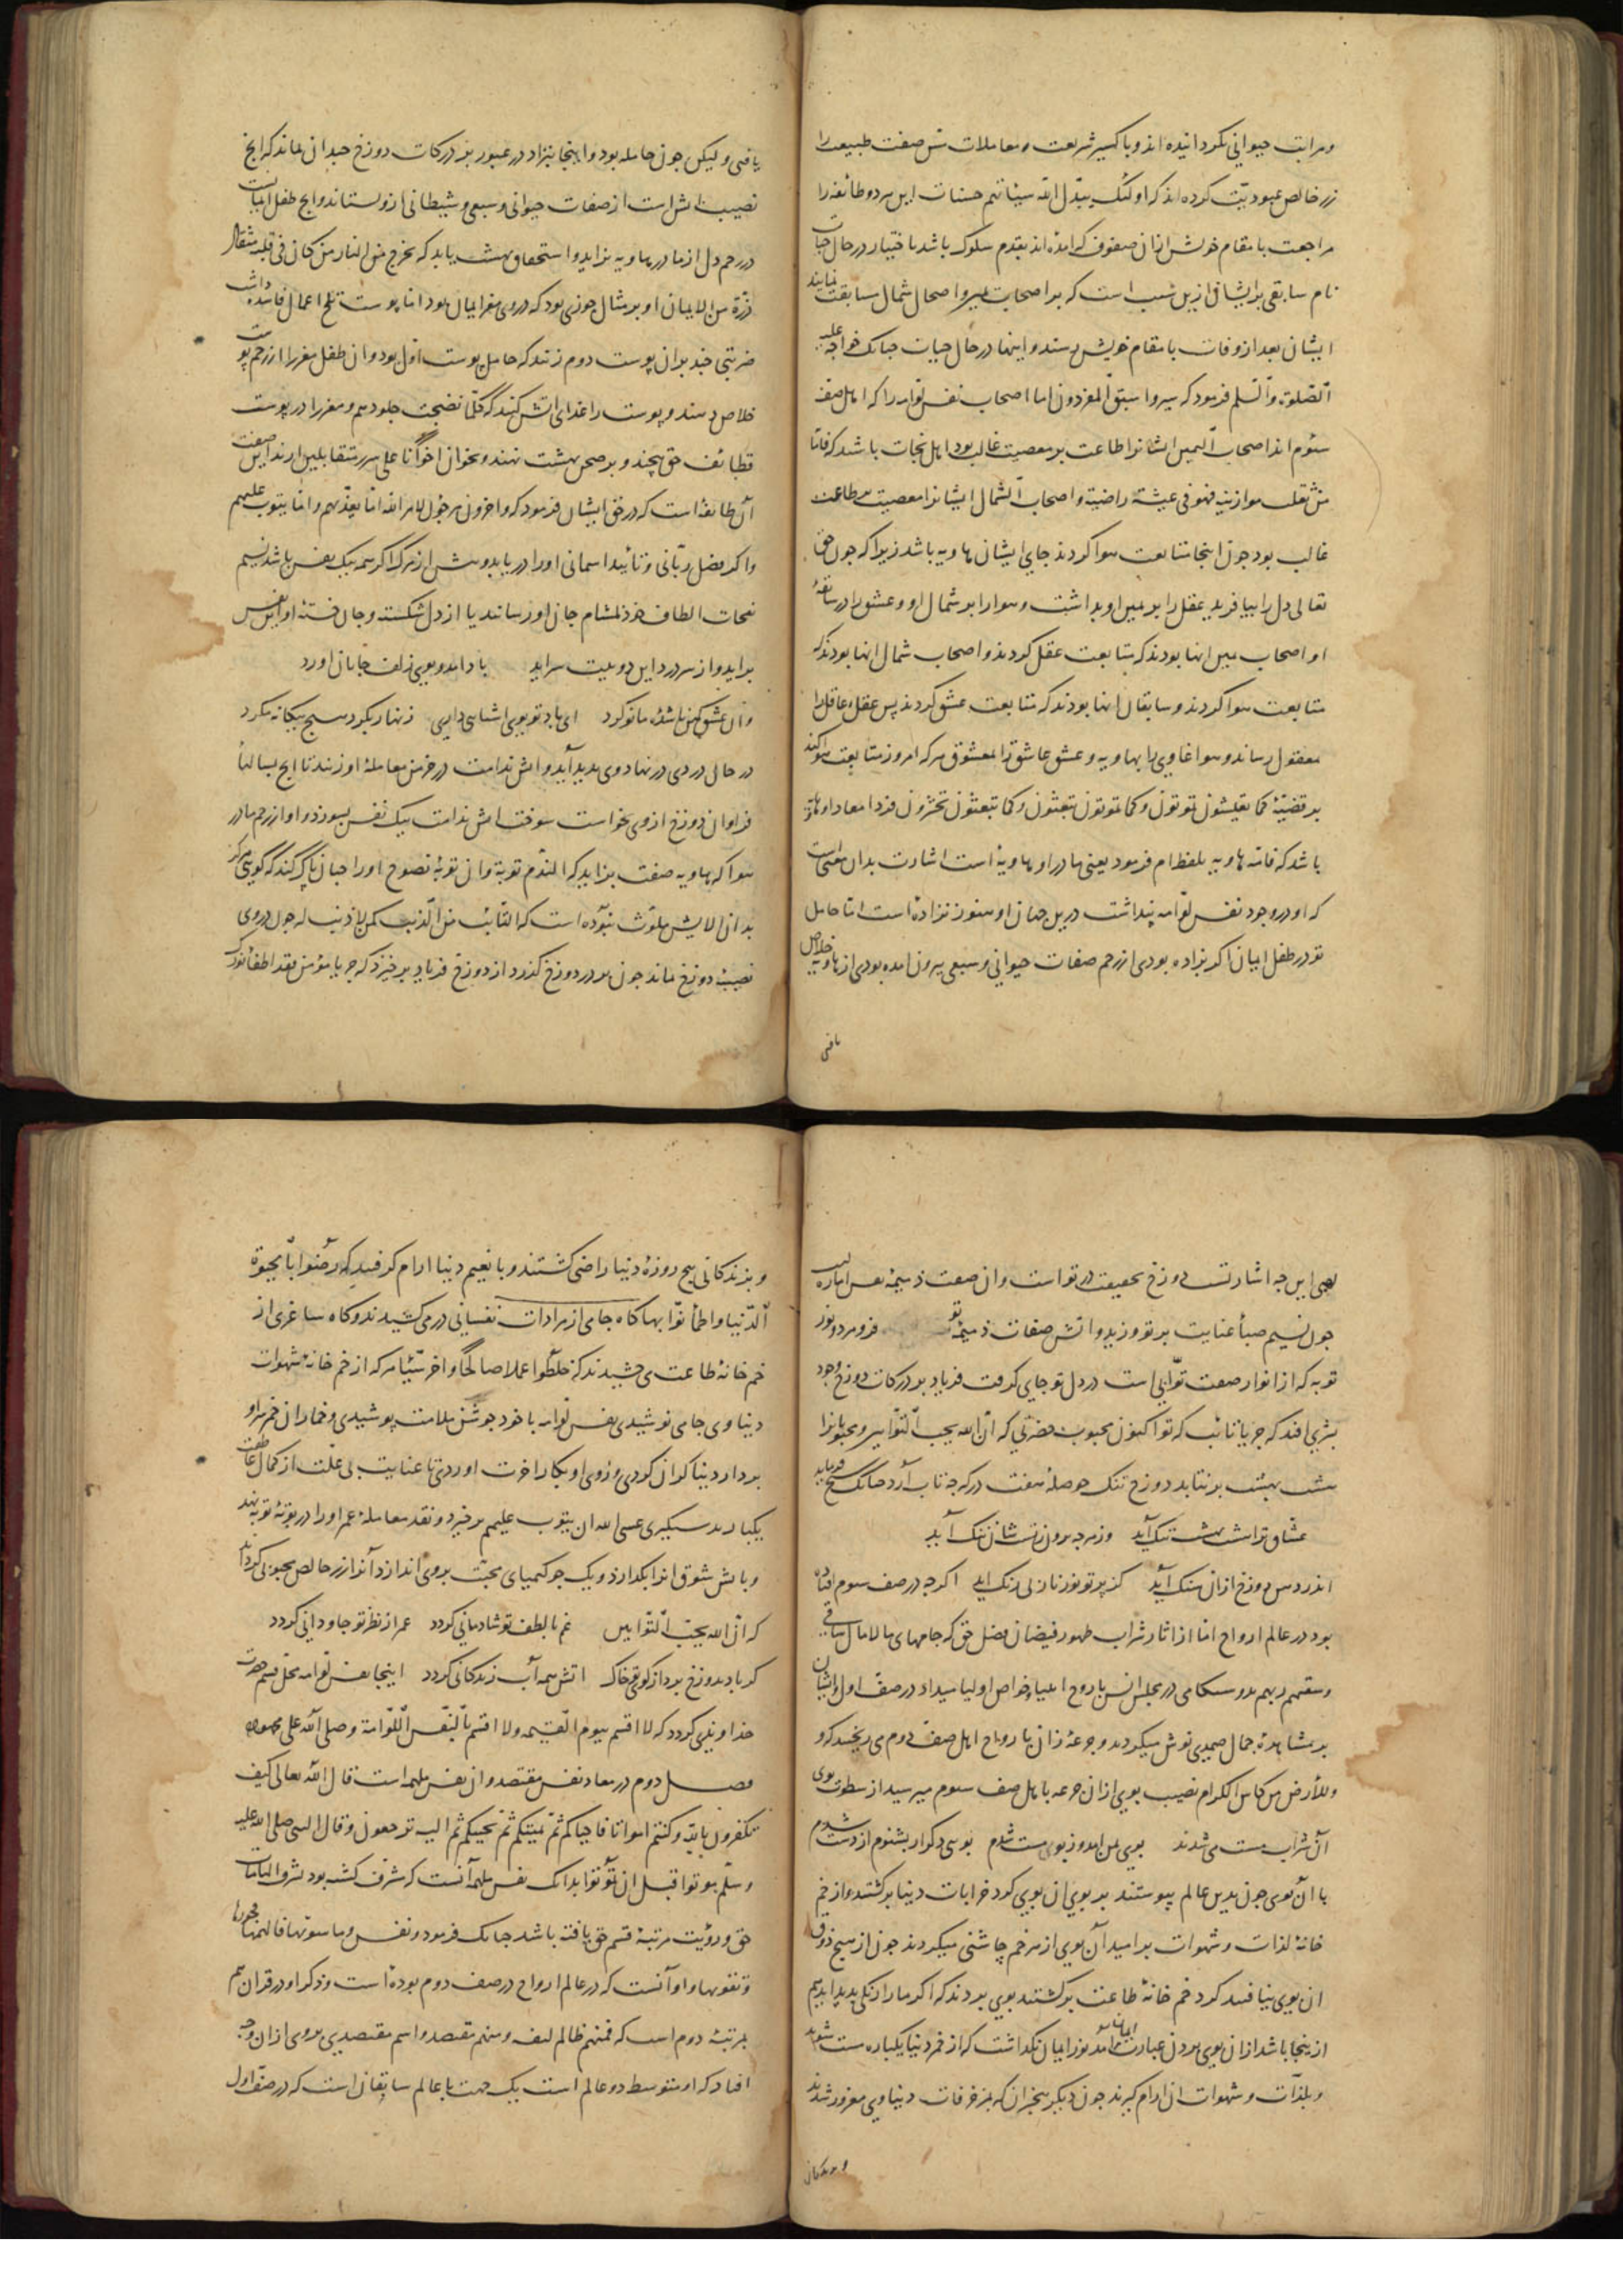 ومراتب حیوانی نکردانیده اند و باکسیر شریعت و معاملات مس صفت طبیعت را
زر خالص عبودیت کرده اند که اولئک یبدل الله سیئاتهم حسنات این هر دو طائفه را
مراجعت با مقام خویش از ان صفوف که امده اند بقدم سلوک باشد باختیار در حال حیات
نام سابقی بر ایشان ازین سبب است که بر اصحاب یمین و اصحاب شمال سابقت نمایند
ایشان بعد از وفات با مقام خویش رسند و اینها در حال حیات چنانک خواجه علیه
الصلوة والسلم فرمود که سیروا سبق المفردون اما اصحاب نفس لوامه را که اهل صف
سوم اند اصحاب الیمین ایشانرا طاعت بر معصیت غالب بود اهل نجات باشد که فاما
من ثقلت موازینه فهو فی عیشة راضیة و اصحاب الشمال ایشانرا معصیت بر طاعت
غالب بود چون اینجا متابعت هوا کردند جای ایشان هاویه باشد زیرا که چون حق
تعالی دل را بیافرید عقل را بر یمین او بداشت و هوا را بر شمال او و عشق را در سابقهٔ
او اصحاب یمین انها بودند که متابعت عقل کردند و اصحاب شمال انها بودند که
متابعت هوا کردند و سابقان انها بودند که متابعت عشق کردند پس عقل عاقل را
بمعقول رساند و هوا غاوی را بهاویه و عشق عاشق را بمعشوق هر که امروز متابعت هوا کند
بر قضیهٔ کما تعیشون تموتون و کما تموتون تبعثون و کما تبعثون تحشرون فردا معاد او هاویه
باشد که فامه هاویه بلفظ ام فرمود یعنی مادر او هاویه است اشارت بدان معنی است
که او در وجود نفس لوامه پنداشت درین جهان او هنوز نزاده است اما حامل
تو در طفل ایمان اکر بزاده بودی از رحم صفات حیوانی و سبعی بیرون امده بودی از هاویه خلاص
یافتی
یافتی ولیکن چون حامله بود و اینجا نزاد در عبور بر درکات دوزخ چندان بماند که انچ
نصیب اتش است از صفات حیوانی و سبعی و شیطانی از و بستاند و انچ طفل ایمانست
در رحم دل از مادر هاویه بزاید و استحقاق بهشت یابد که یخرج من النار من کان فی قلبه مثقال
ذرة من الایمان او بر مثال جوزی بود که در وی مغز ایمان بود اما پوست تلخ اعمال فاسده داشت
ضربتی چند بر ان پوست دوم زنند که حامل پوست اول بود و ان طفل مغز را از رحم پوست
خلاص دهند و پوست را غذای اتش کنند که کلما نضجت جلودهم و مغز را در پوست
قطائف حق پیچند و بر صحن بهشت نهند و بخوان اخوانا علی سرر متقابلین ارند این صفت
آن طائفه است که در حق ایشان فرمود که واخرون مرجون لامر الله اما یعذبهم واما یتوب علیهم
و اکر فضل ربانی و تأیید اسمانی او را دریابد و پیش از مرک اکر همه بیک نفس باشد نسیم
نفحات الطاف خود بمشام جان او رساند یا از دل شکسته و جان خستهٔ او این نفس
براید و از سر درد این دو بیت سراید     باد امد و بوی زلف جانان اورد
وان عشق کهن ناشده ما نو کرد     ای باد تو بوی اشنایی داری     زنهار بکرد هیچ بیکانه مکرد
در حال دردی در نهاد وی پدید آید و اتش ندامت در خرمن معاملهٔ او زند تا انچ بسالها
فراوان دوزخ از وی بخواست سوخت اتش ندامت بیک نفس بسوزد و او از رحم مادر
هوا که هاویه صفت بزاید که الندم توبة و ان توبهٔ نصوح او را چنان پاک کند که کویی هرکز
بدان الایش ملوث نبوده است که التائب من الذنب کمن لا ذنب له چون در وی
نصیب دوزخ نماند چون بر در دوزخ کذرد از دوزخ فریاد برخیزد که جز یا مؤمن فقد اطفا نورک
لهبی این چه اشارتست دوزخ بحقیقت در تو است و ان صفت ذمیمهٔ نفس اماره
چون نسیم صبا عنایت بر تو وزید و اتش صفات ذمیمهٔ تو فرو مرد و نور
توبه که از انوار صفت توابی است در دل تو جای کرفت فریاد بر درکات دوزخ وجود
بشری افتد که جز یا تائب که تو اکنون محبوب حضرتی که ان الله یحب التوابین و محبوبانرا
هشت بهشت برنتابد دوزخ تنک حوصلهٔ هفت درکه چه تاب آرد چنانک شیخ فرماید
عشاق ترا هشت بهشت تنک آید     وز هر چه برون تست شان ننک آید
اندر دهن دوزخ ازان سنک آید     کز پرتو نور نار بی رنک اید     اکر چه در صف سوم افتاده
بود در عالم ارواح اما از اثار شراب طهور فیضان فضل حق که جامهای مالامال ساقی
وسقیهم ربهم در مجلس انس با روح انبیا و خواص اولیا میداد در صف اول ایشان
بر مشاهدهٔ جمال صمدی نوش میکردند و جرعهٔ زان با رواح اهل صف دوم می ریختند که و
وللارض من کاس الکرام نصیب بویی ازان جرعه باهل صف سوم میرسید از سطوت بوی
آن شراب مست می شدند     بویی بمن امد و زبوی مست شدم     بوی دکر ار بشنوم از دست شدم
با آن بوی چون بدین عالم پیوستند بر بوی ان بوی کرد خرابات دنیا برکشتند و از خم
خانهٔ لذات و شهوات بر امید آن بوی از هر خم چاشنی میکردند چون از هیچ ذوق
ان بوی نیافتند کرد خم خانهٔ طاعت برکشتند بوی بردند که اکر ما را رنکی پدید اید هم
از ینجا باشد ازان بوی بردن عبارت ایمان آمد نور ایمان نکذاشت که از خمر دنیا یکباره مست شوند
و بلذات و شهوات ان ارام کیرند چون دیکر بیخبران که بمزخرفات دنیاوی مغرور شدند
و بزندکانی
و بزندکانی پنج روزهٔ دنیا راضی کشتند و با نعیم دنیا ارام کرفتند که رضوا بالحیوة
الدنیا واطمأنوا بها کاه جامی از مرادات نفسانی در می کشیدند و کاه ساغری از
خم خانهٔ طاعت می چشیدند که خلطوا عملا صالحا واخر سیئا هر که از خم خانهٔ شهوات
دنیاوی جامی نوشیدی نفس لوامه با خود جوشن ملامت پوشیدی و خماران خمر سر او
بر دار دنیا کران کردی و روی او بکار اخرت اوردی تا عنایت بی علت از کمال عاطفت
یکبار بدستگیری عسی الله ان یتوب علیهم برخیزد و نقد معاملهٔ عمر او را در بوتهٔ توبه نهد
و باتش شوق انرا بکدازد و یک جو کیمیای محبت بر وی اندازد و آنرا زر خالص محبوبی کرداند
که ان الله یحب التوابین     غم با لطف تو شادمانی کردد     عمر از نظر تو جاودانی کردد
کر باد بدوزخ برد از کوی تو خاک     اتش همه آب زندکانی کردد     اینجا نفس لوامه محل قسم حضرت
خداوندی کردد که لا اقسم بیوم القیمه ولا اقسم بالنفس اللوامة وصلی الله علی محمد واله
فصل دوم در معاد نفس مقتصد و ان نفس ملهمه است قال الله تعالی کیف
تکفرون بالله وکنتم امواتا فاحیاکم ثم یمیتکم ثم یحییکم ثم الیه ترجعون وقال النبی صلی الله علیه
وسلم موتوا قبل ان تموتوا بدانک نفس ملهمه آنست که مشرف کشته بود بشرف الهامات
حق و رؤیت مرتبهٔ قسم حق یافته باشد چنانک فرمود ونفس وما سویها فالهمها فجورها
وتقویها و او آنست که در عالم ارواح در صف دوم بوده است و ذکر او در قران هم
بمرتبهٔ دوم است که فمنهم ظالم لنفسه ومنهم مقتصد و اسم مقتصدی بر وی ازان وجه
افتاد که او متوسط دو عالم است یک جهت با عالم سابقان است که در صف اول